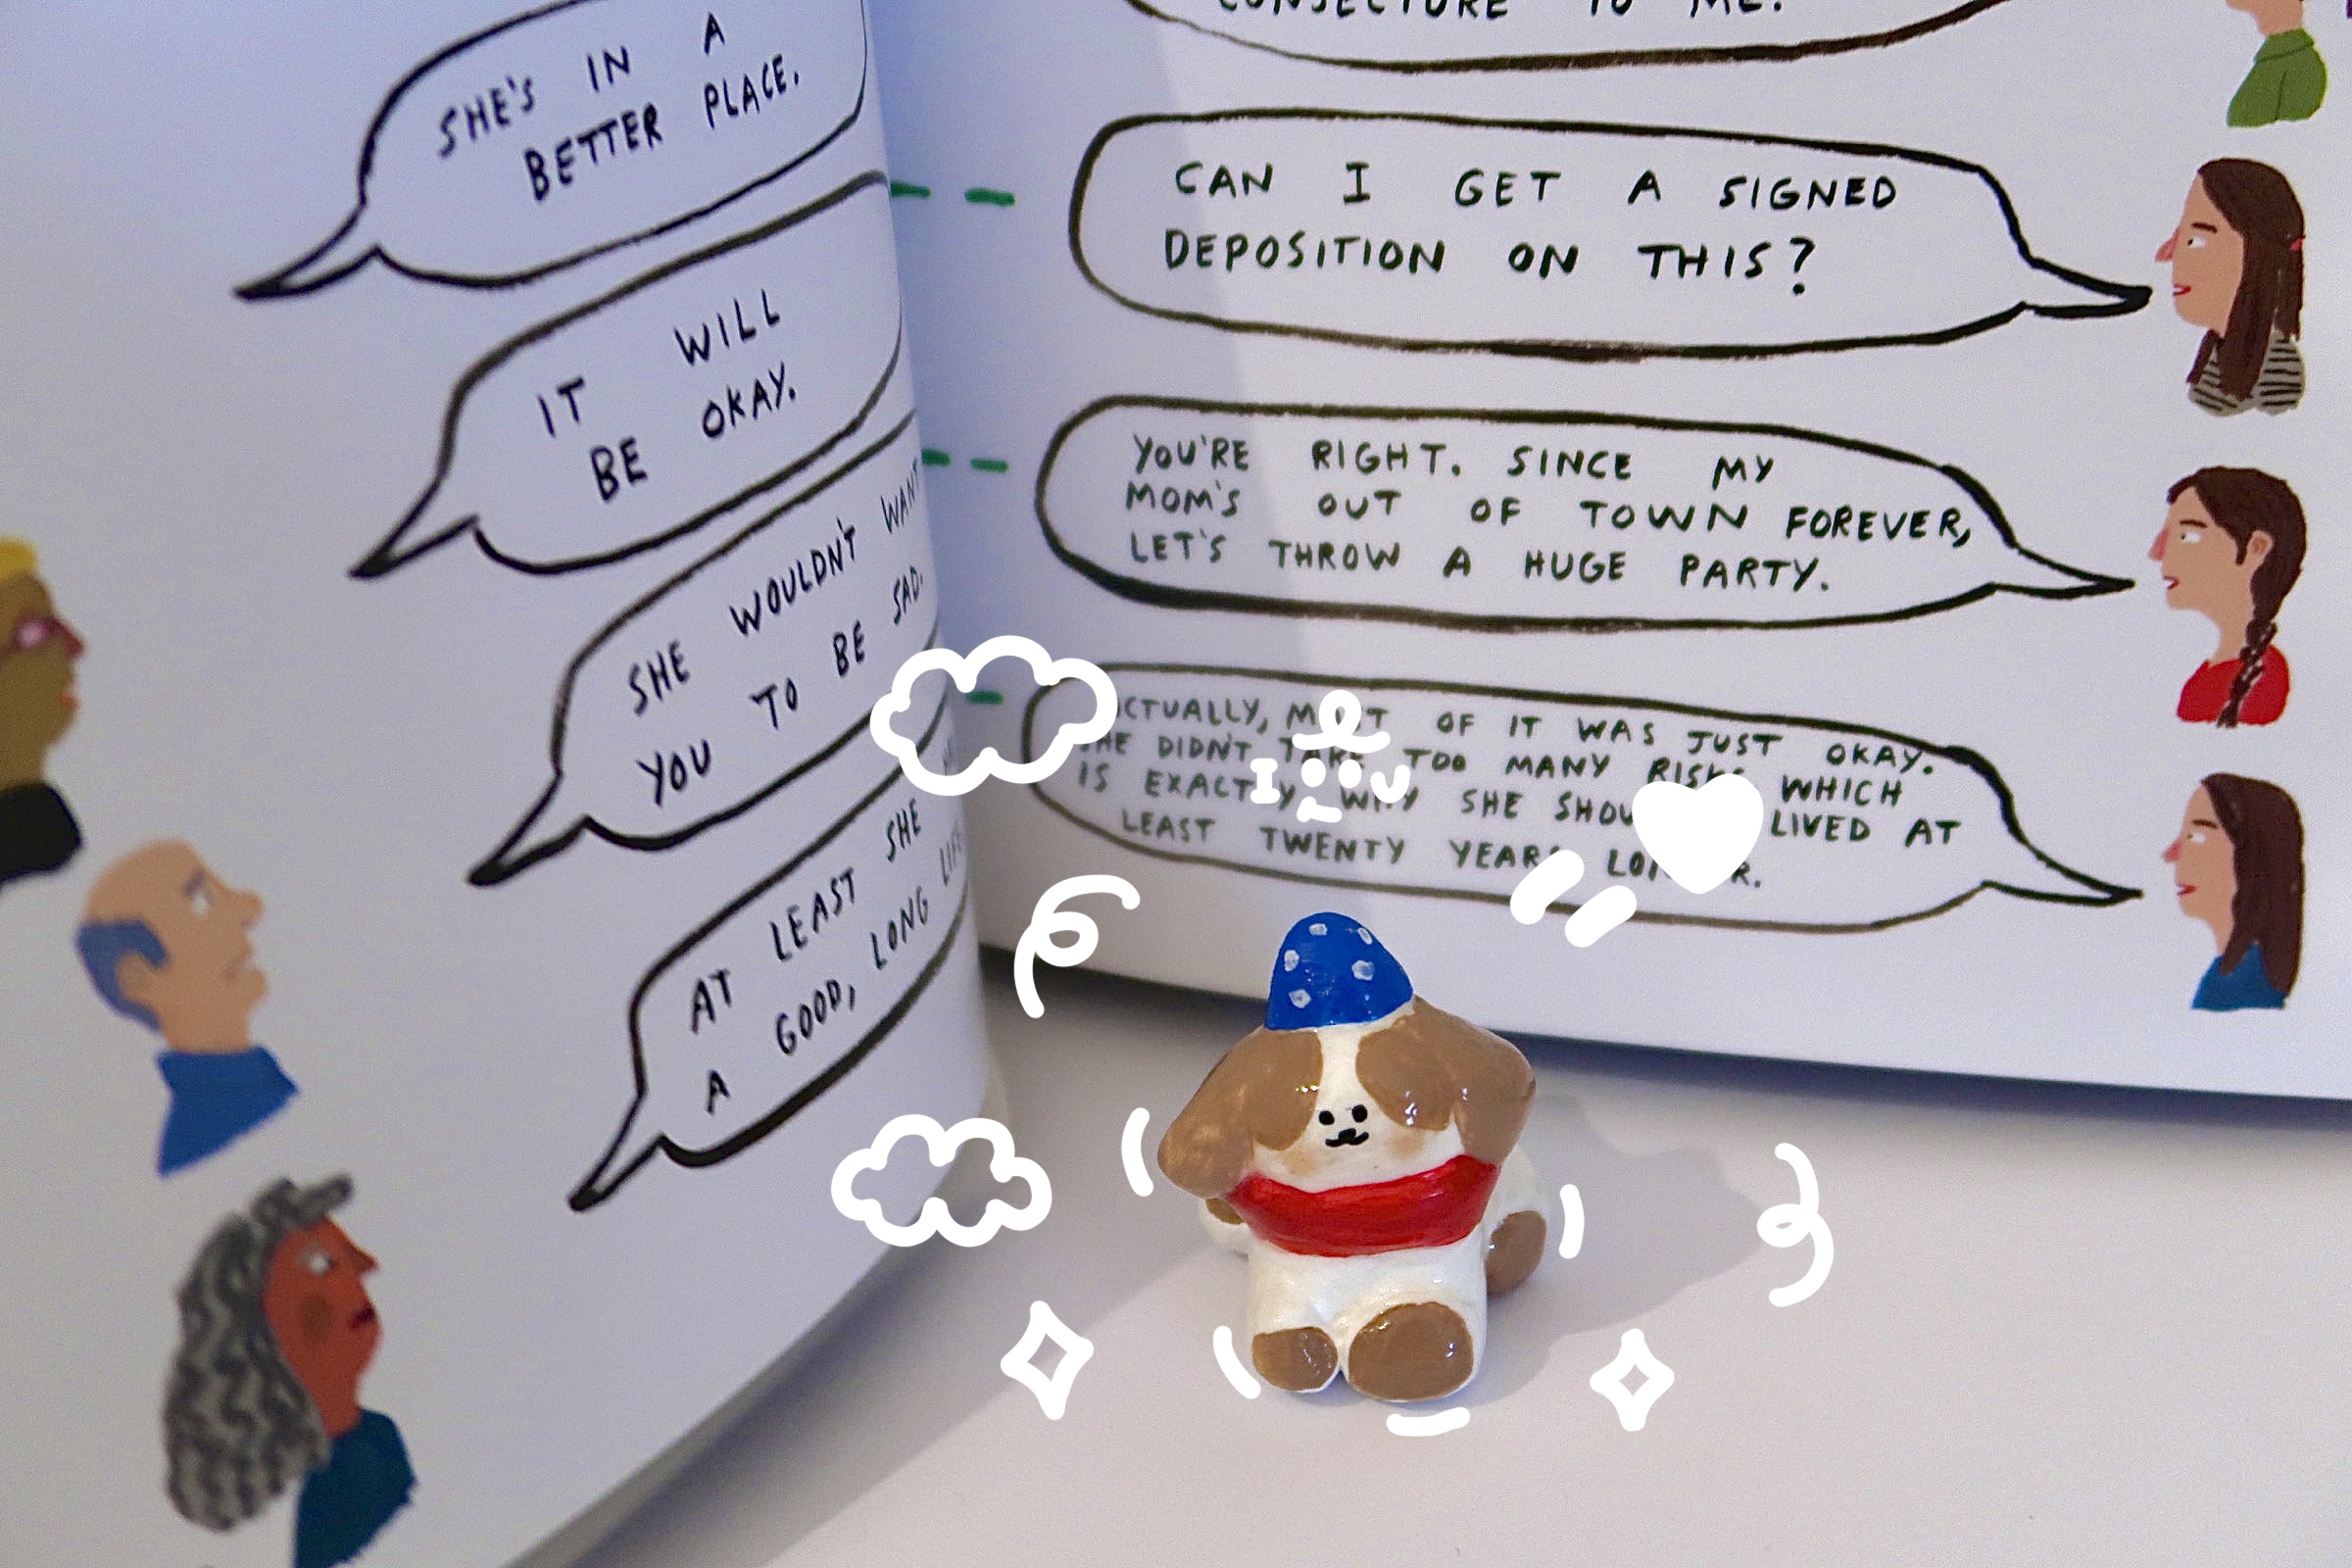 SHE'S IN A
BETTER PLACE.
IT WILL
BE OKAY.
SHE WOULDN'T WANT
YOU TO BE SAD.
AT LEAST SHE
A GOOD, LONG LIFE
TO ME.
CAN I GET A SIGNED
DEPOSITION ON THIS?
YOU'RE RIGHT. SINCE MY
MOM'S OUT OF TOWN FOREVER,
LET'S THROW A HUGE PARTY.
CTUALLY, MOST OF IT WAS JUST OKAY.
SHE DIDN'T TAKE TOO MANY RISKS WHICH
IS EXACTLY WHY SHE SHOU LIVED AT
LEAST TWENTY YEARS LONGER.
I U